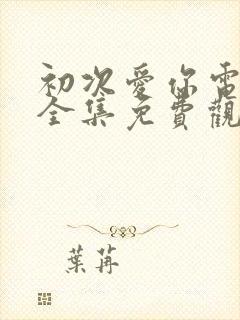 初次愛你電
全集免費觀
葉苒